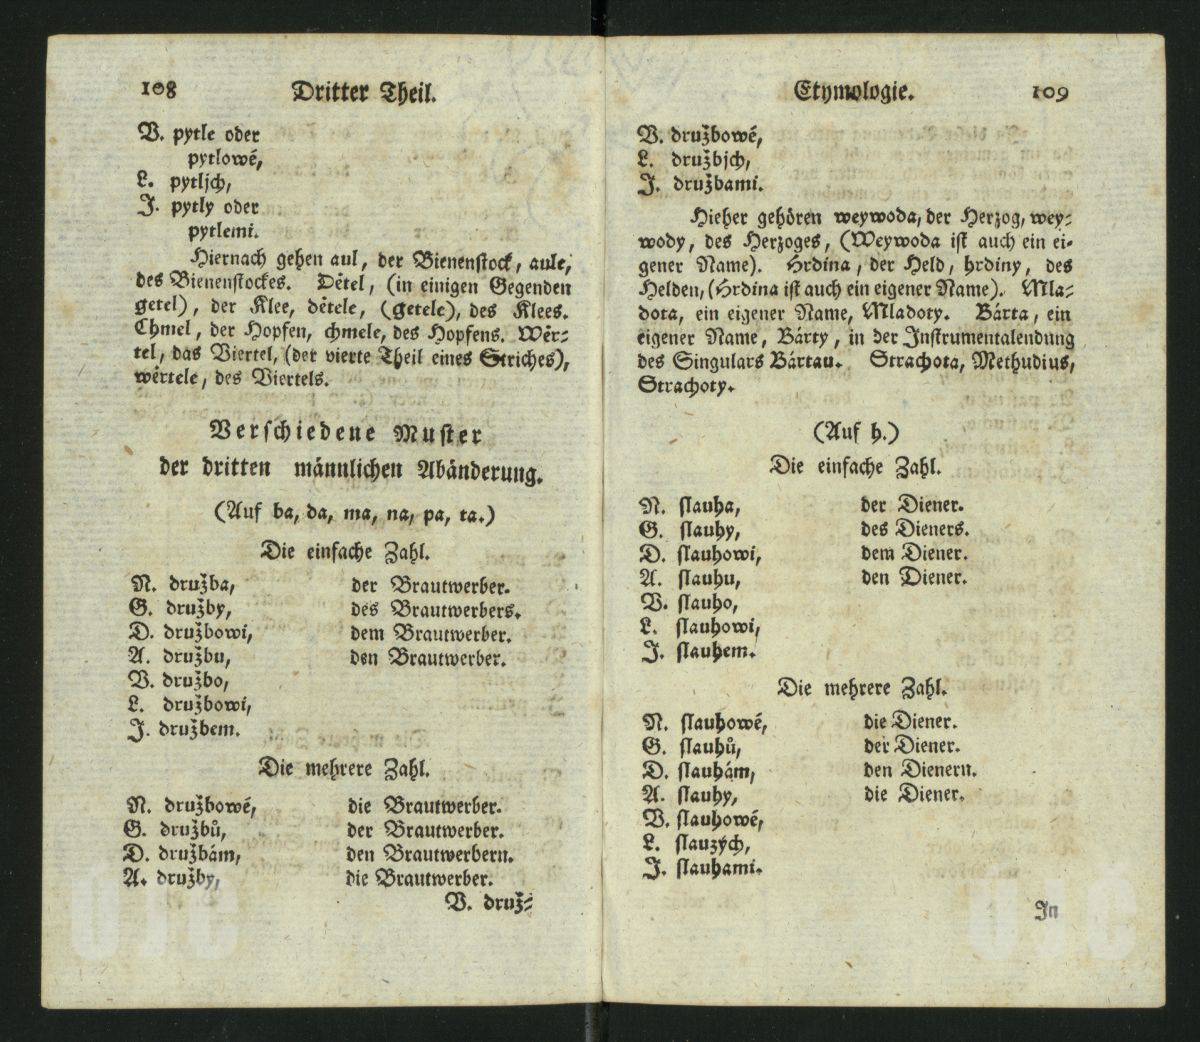 108 Dritter Theil.
V. pytle oder
pytlowé,
L. pytljch,
J. pytly oder
pytlemi.
Hiernach gehen aul, der Bienenstock, aule,
des Bienenstockes. Dětel, (in einigen Gegenden
getel), der Klee, dětele, (getele), des Klees.
Chmel, der Hopfen, chmele, des Hopfens. Wěr⸗
tel, das Viertel, (der vierte Theil eines Striches),
wěrtele, des Viertels.
Verschiedene Muster
der dritten männlichen Abänderung.
(Auf ba, da, ma, na, pa, ta.)
Die einfache Zahl.
N. družba, der Brautwerber.
G. družby, des Brautwerbers.
D. družbowi, dem Brautwerber.
A. družbu, den Brautwerber.
V. družbo,
L. družbowi,
J. družbem.
Die mehrere Zahl.
N. družbowé, die Brautwerber.
G. družbů, der Brautwerber.
D. družbám, den Brautwerbern.
A. družby, die Brautwerber.
V. druž⸗
UJC
Etymologie. 109
V. družbowé,
L. družbjch,
J. družbami.
Hieher gehören weywoda, der Herzog, wey⸗
wody, des Herzoges, (Weywoda ist auch ein ei⸗
gener Name). Hrdina, der Held, hrdiny, des
Helden, (Hrdina ist auch ein eigener Name). Mla⸗
dota, ein eigener Name, Mladoty. Bárta, ein
eigener Name, Bárty, in der Instrumentalendung
des Singulars Bártau. Strachota, Methudius,
Strachoty.
(Auf h.)
Die einfache Zahl.
N. slauha, der Diener.
G. slauhy, des Dieners.
D. slauhowi, dem Diener.
A. slauhu, den Diener.
V. slauho,
L. slauhowi,
J. slauhem.
Die mehrere Zahl.
N. slauhowé, die Diener.
G. slauhů, der Diener.
D. slauhám, den Dienern.
A. slauhy, die Diener.
V. slauhowé,
L. slauzých,
J. slauhami.
In
UJC